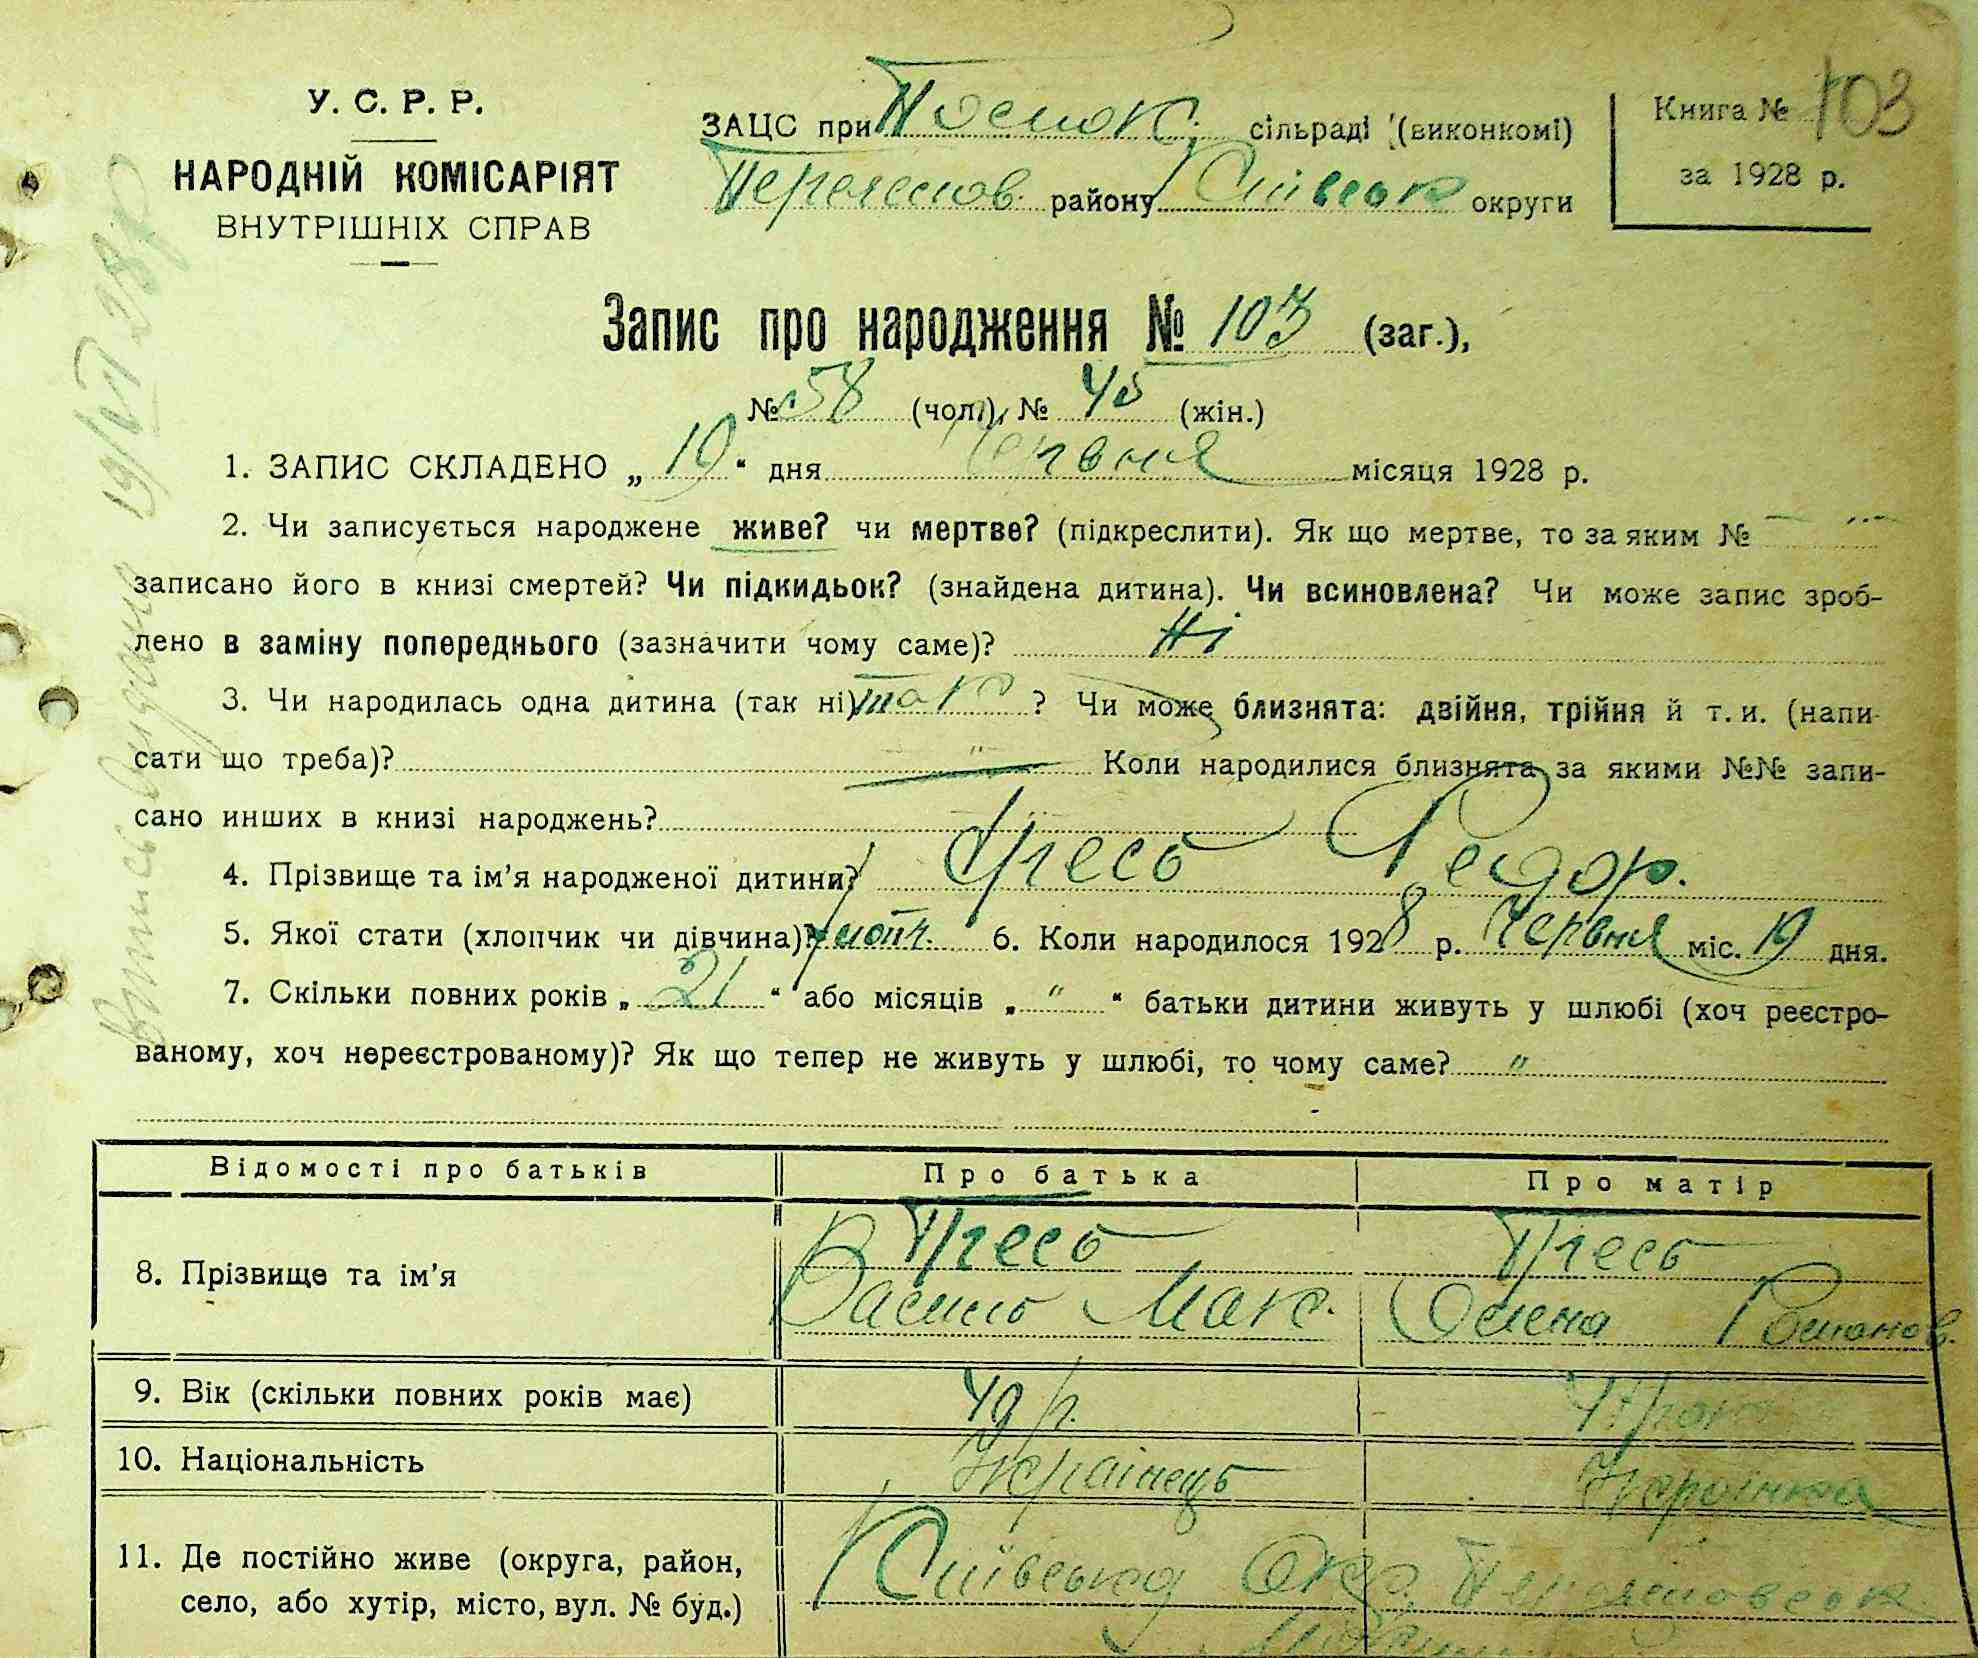 У. С. Р. Р.
НАРОДНІЙ КОМІСАРІЯТ
ВНУТРІШНІХ СПРАВ
ЗАЦС при сільраді (виконкомі)
району Київськ округи
Книга № 103
за 1928 р.
Запис про народження № 103 (заг.),
№ 58 (чол.), № 45 (жін.)
1. ЗАПИС СКЛАДЕНО „ 19 “ дня Червня місяця 1928 р.
2. Чи записується народжене живе? чи мертве? (підкреслити). Як що мертве, то за яким №
записано його в книзі смертей? Чи підкидьок? (знайдена дитина). Чи всиновлена? Чи може запис зроб-
лено в заміну попереднього (зазначити чому саме)? Ні
3. Чи народилась одна дитина (так ні) так ? Чи може близнята: двійня, трійня й т. и. (напи-
сати що треба)? Коли народилися близнята за якими №№ запи-
сано инших в книзі народжень?
4. Прізвище та ім’я народженої дитини? Пресь Федор.
5. Якої стати (хлопчик чи дівчина)? хлопч. 6. Коли народилося 1928 р. Червня міс. 19 дня.
7. Скільки повних років „ 21 “ або місяців „ " “ батьки дитини живуть у шлюбі (хоч реєстро-
ваному, хоч нереєстрованому)? Як що тепер не живуть у шлюбі, то чому саме? "
Відомості про батьків Про батька Про матір
8. Прізвище та ім’я Пресь Василь Мак. Пресь Олена Романов.
9. Вік (скільки повних років має) 49 р.
10. Національність Українець Українка
11. Де постійно живе (округа, район, Київська Окр.
село, або хутір, місто, вул. № буд.)
Выпись выдана 19/VI 28 р